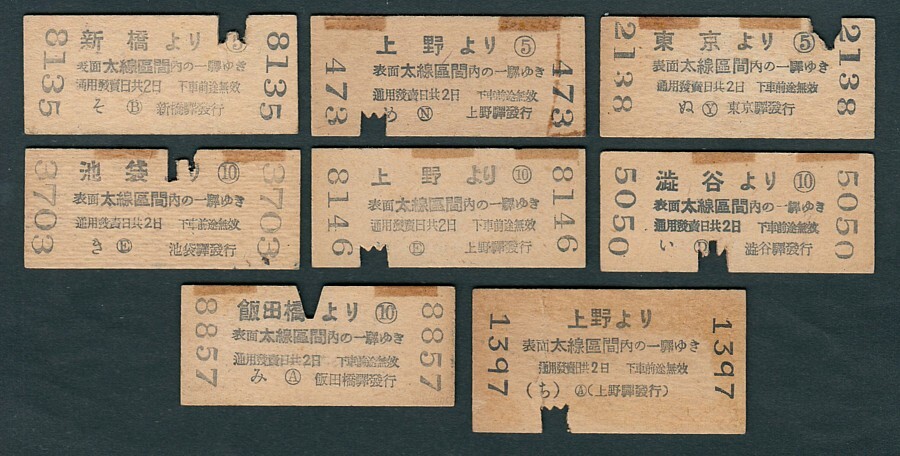 8135
新橋より ⑤
表面太線區間内の一驛ゆき
通用發賣日共2日 下車前途無效
そ Ⓑ 新橋驛發行
8135
473
上野より ⑤
表面太線區間内の一驛ゆき
通用發賣日共2日 下車前途無效
め Ⓝ 上野驛發行
473
2138
東京より ⑤
表面太線區間内の一驛ゆき
通用發賣日共2日 下車前途無效
ぬ Ⓨ 東京驛發行
2138
3703
池袋より ⑩
表面太線區間内の一驛ゆき
通用發賣日共2日 下車前途無效
き Ⓔ 池袋驛發行
3703
8146
上野より ⑩
表面太線區間内の一驛ゆき
通用發賣日共2日 下車前途無效
Ⓔ 上野驛發行
8146
5050
澁谷より ⑩
表面太線區間内の一驛ゆき
通用發賣日共2日 下車前途無效
い 澁谷驛發行
5050
8857
飯田橋より ⑩
表面太線區間内の一驛ゆき
通用發賣日共2日 下車前途無效
み Ⓐ 飯田橋驛發行
8857
1397
上野より
表面太線區間内の一驛ゆき
通用發賣日共2日 下車前途無效
(ち) Ⓐ(上野驛發行)
1397